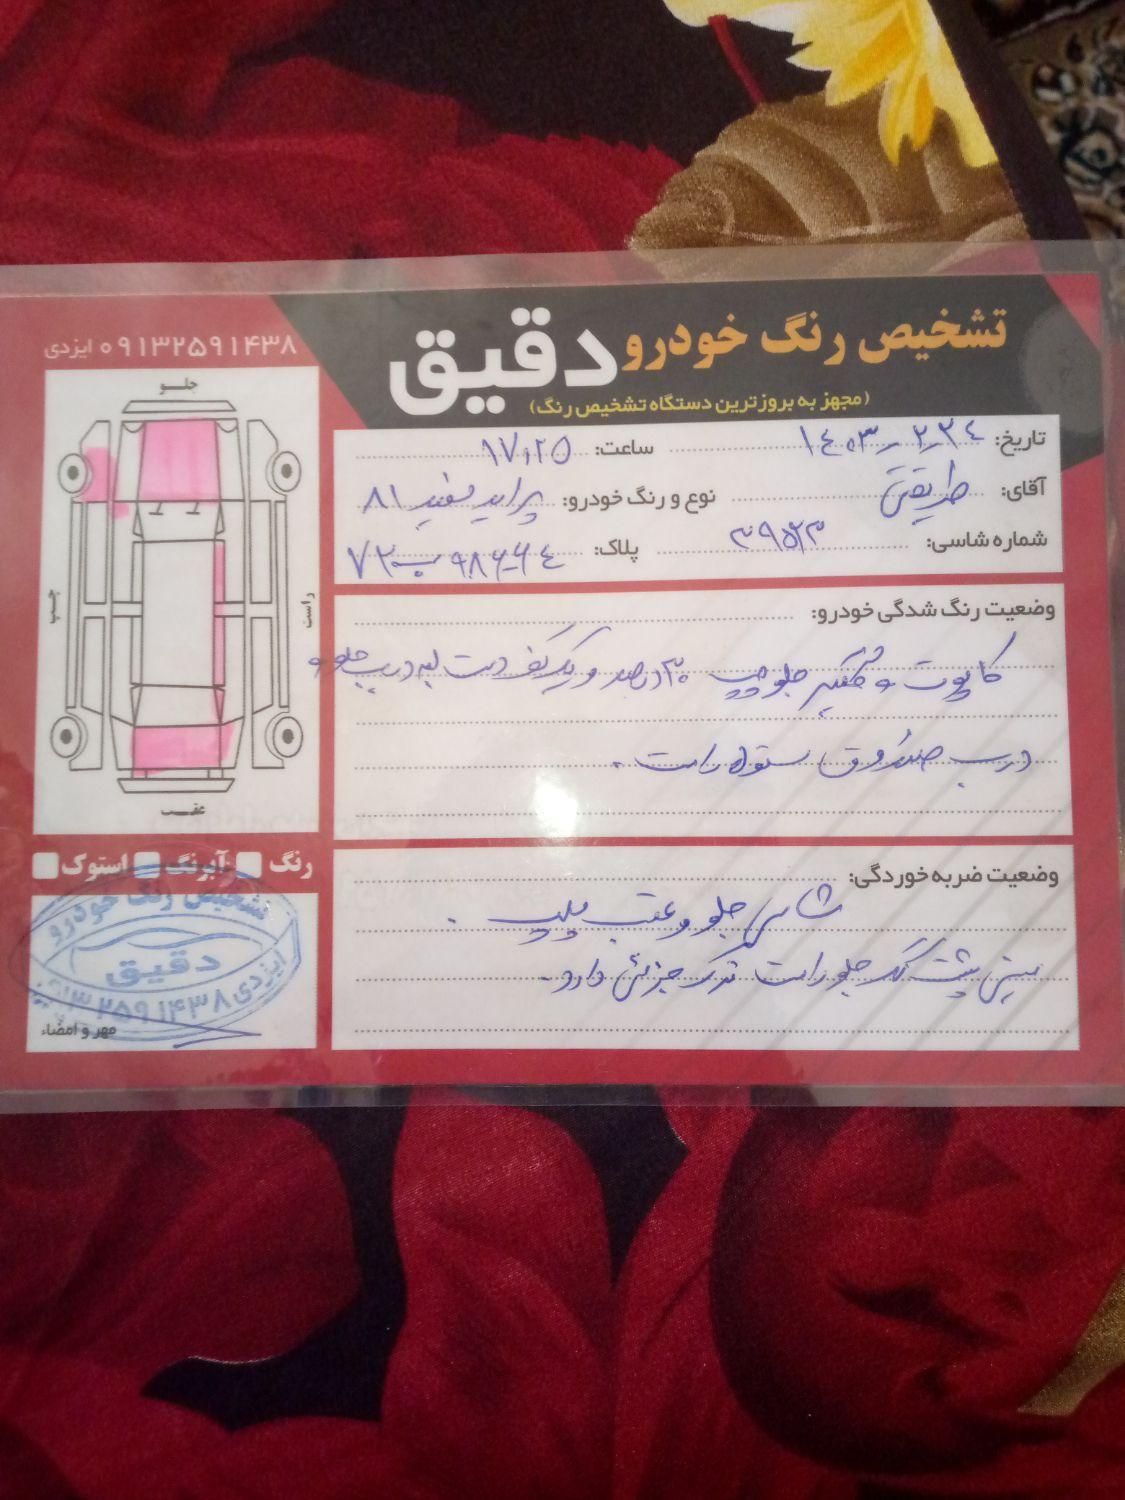 تشخیص رنگ خودرو دقیق
(مجهز به بروزترین دستگاه تشخیص رنگ)
۰۹۱۳۲۵۹۱۴۳۸ ایزدی
تاریخ: ۱۴۰۳٫۲٫۲۴ ساعت: ۱۷٫۲۵
آقای: طریقتی نوع و رنگ خودرو: پراید سفید ۸۱
شماره شاسی: پلاک:
جلو
چپ
راست
عقب
وضعیت رنگ شدگی خودرو:
کاپوت و گلگیر جلو چپ ۳۰ درصد و یک کف دست لبه درب جلو و
درب صندوق ستون راست.
رنگ آبرنگ استوک
وضعیت ضربه خوردگی:
شاسی جلو و عقب پلمپ.
سینی پشت گلگیر جلو راست ترک جزئی دارد.
تشخیص رنگ خودرو
دقیق
ایزدی ۰۹۱۳۲۵۹۱۴۳۸
مهر و امضاء